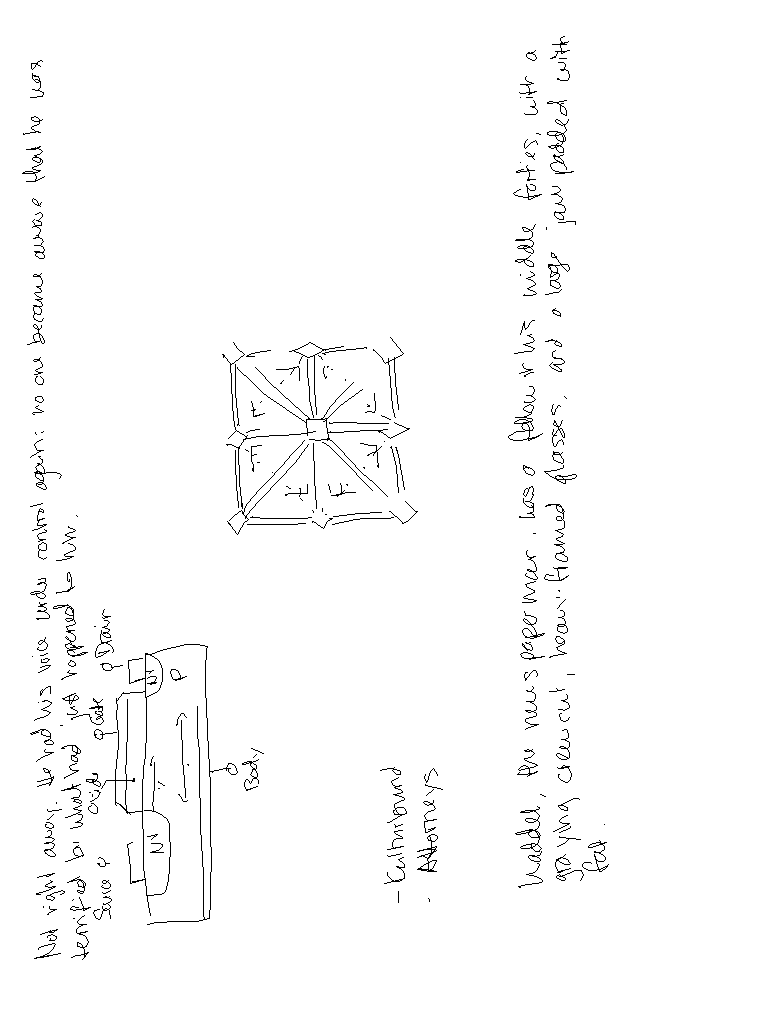 Not right away. He had his voice under control again: no one became aware that he was
terrified by what had just happened to him.
Source
Oxide
Gate
Drain
N
N
P
Body
- Kulturbund
- Attorneys
Waddel, the newspaperman, was a fellow in his middle forties, with a
graying crewcut, heavy-framed glasses, and a large jaw padded with
fat.